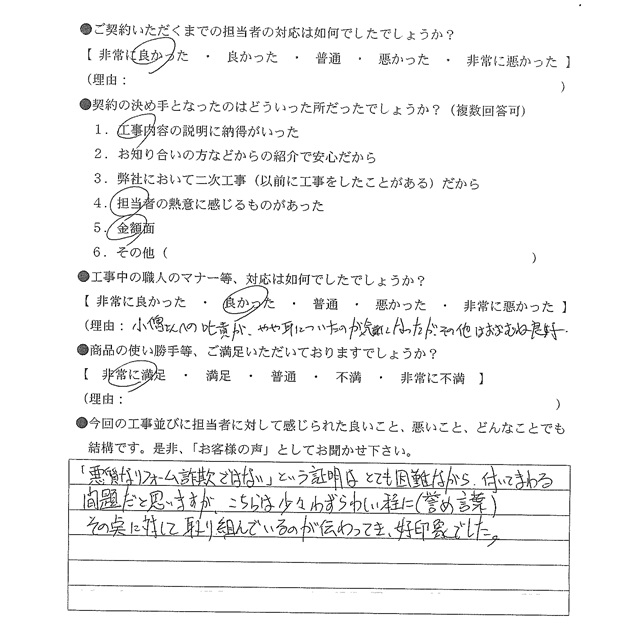 ●ご契約いただくまでの担当者の対応は如何でしたでしょうか？
【 非常に良かった ・ 良かった ・ 普通 ・ 悪かった ・ 非常に悪かった 】
（理由： ）
●契約の決め手となったのはどういった所だったでしょうか？（複数回答可）
１．工事内容の説明に納得がいった
２．お知り合いの方などからの紹介で安心だから
３．弊社において二次工事（以前に工事をしたことがある）だから
４．担当者の熱意に感じるものがあった
５．金額面
６．その他（ ）
●工事中の職人のマナー等、対応は如何でしたでしょうか？
【 非常に良かった ・ 良かった ・ 普通 ・ 悪かった ・ 非常に悪かった 】
（理由：小僧さんへの叱責が、やや耳についたのが気になったが、その他はおおむね良好．
●商品の使い勝手等、ご満足いただいておりますでしょうか？
【 非常に満足 ・ 満足 ・ 普通 ・ 不満 ・ 非常に不満 】
（理由： ）
●今回の工事並びに担当者に対して感じられた良いこと、悪いこと、どんなことでも
結構です。是非、「お客様の声」としてお聞かせ下さい。
「悪質なリフォーム詐欺ではない」という証明はとても困難ながら、付いてまわる
問題だと思いますが、こちらは少々わずらわしい程に（誉め言葉）
その点に対して取り組んでいるのが伝わってき、好印象でした。